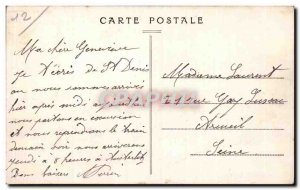 12
CARTE POSTALE
Ma chère Geneviève
je t'écris de St Denis
ou nous sommes arrivés
hier après midi aujourd'hui
nous partons en excursion
et nous reprendrons le train
demain soir nous arriverons
jeudi à 8 heures à
Bons baisers
Madame Laurent
21 rue Gay Lussac
Arcueil
Seine